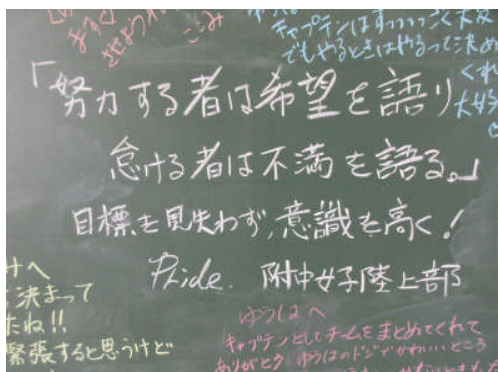 ます
させようﾒﾝ
こころみ
キャプテンはすっっっごく大変
でもやるときはやるって決め
くれ
大好
「努力する者は希望を語り
怠ける者は不満を語る。」
目標を見失わず、意識を高く!
Pride. 附中女子陸上部
けへ
決まって
たね!!
緊張すると思うけど
ゆうはへ
キャプテンとしてチームをまとめてくれて
ありがとう ゆうはのドジでかわいいところ